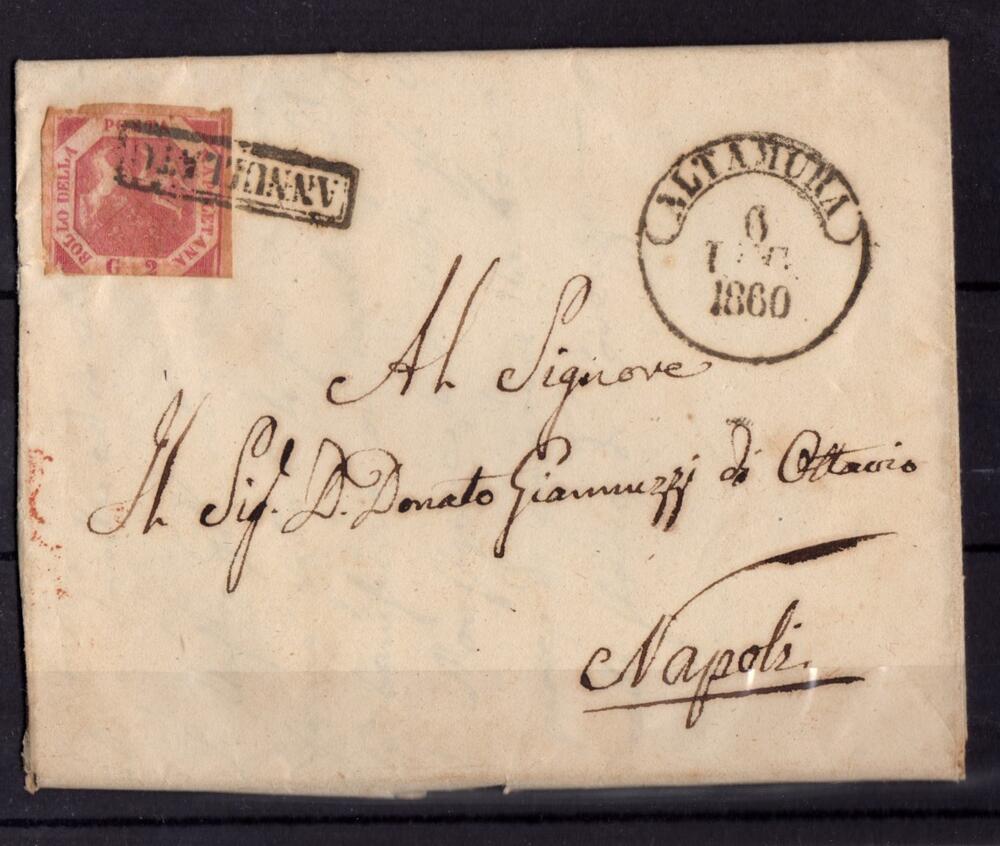 BOLLO DELLA
POSTA
NAPOLETANA
G. 2
ANNULLATO
ALTAMURA
6
1860
Al Signore
Il Sig. D. Donato Giannuzzi di Ottavio
Napoli